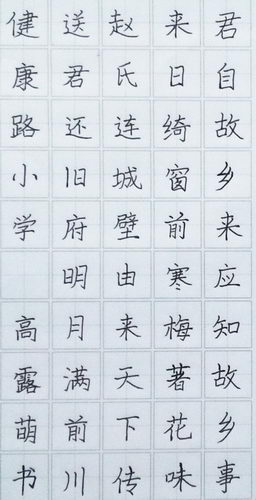 君自故乡来应知故乡事
来日绮窗前寒梅著花味
赵氏连城壁由来天下传
送君还旧府明月满前川
健康路小学 高露萌书